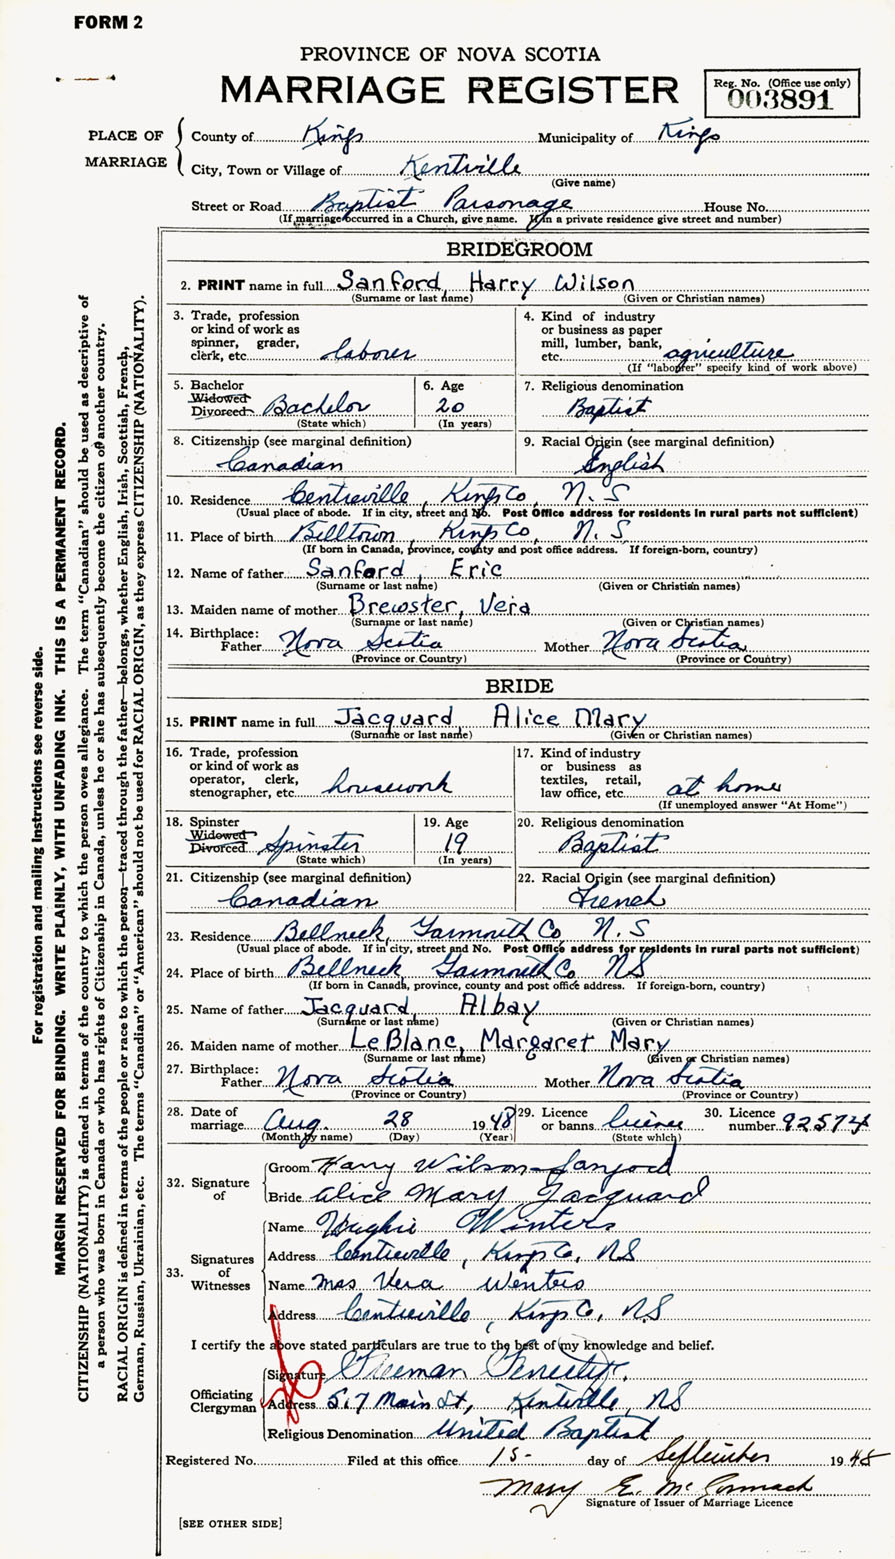 FORM 2
PROVINCE OF NOVA SCOTIA
MARRIAGE REGISTER
Reg. No. (Office use only)
003891
PLACE OF MARRIAGE
County of Kings Municipality of Kings
City, Town or Village of Kentville
(Give name)
Street or Road Baptist Parsonage House No.
(If marriage occurred in a Church, give name. If in a private residence give street and number)
BRIDEGROOM
2. PRINT name in full Sanford, Harry Wilson
(Surname or last name) (Given or Christian names)
3. Trade, profession or kind of work as spinner, grader, clerk, etc. laborer
4. Kind of industry or business as paper mill, lumber, bank, etc. agriculture
(If "laborer" specify kind of work above)
5. Bachelor Widowed Divorced Bachelor
(State which)
6. Age 20
(In years)
7. Religious denomination Baptist
8. Citizenship (see marginal definition) Canadian
9. Racial Origin (see marginal definition) English
10. Residence Centreville, Kings Co, N.S
(Usual place of abode. If in city, street and No. Post Office address for residents in rural parts not sufficient)
11. Place of birth Billtown, Kings Co, N.S
(If born in Canada, province, county and post office address. If foreign-born, country)
12. Name of father Sanford, Eric
(Surname or last name) (Given or Christian names)
13. Maiden name of mother Brewster, Vera
(Surname or last name) (Given or Christian names)
14. Birthplace: Father Nova Scotia Mother Nova Scotia
(Province or Country) (Province or Country)
BRIDE
15. PRINT name in full Jacquard, Alice Mary
(Surname or last name) (Given or Christian names)
16. Trade, profession or kind of work as operator, clerk, stenographer, etc. housework
17. Kind of industry or business as textiles, retail, law office, etc. at home
(If unemployed answer "At Home")
18. Spinster Widowed Divorced Spinster
(State which)
19. Age 19
(In years)
20. Religious denomination Baptist
21. Citizenship (see marginal definition) Canadian
22. Racial Origin (see marginal definition) French
23. Residence Bellneck, Yarmouth Co N.S
(Usual place of abode. If in city, street and No. Post Office address for residents in rural parts not sufficient)
24. Place of birth Bellneck, Yarmouth Co NS
(If born in Canada, province, county and post office address. If foreign-born, country)
25. Name of father Jacquard, Albay
(Surname or last name) (Given or Christian names)
26. Maiden name of mother LeBlanc, Margaret Mary
(Surname or last name) (Given or Christian names)
27. Birthplace: Father Nova Scotia Mother Nova Scotia
(Province or Country) (Province or Country)
28. Date of marriage Aug. 28 1948
(Month by name) (Day) (Year)
29. Licence or banns licence
(State which)
30. Licence number 92574
32. Signature of
Groom Harry Wilson Sanford
Bride Alice Mary Jacquard
33. Signatures of Witnesses
Name Hughie Winters
Address Centreville, Kings Co, NS
Name Mrs Vera Winters
Address Centreville, Kings Co, NS
I certify the above stated particulars are true to the best of my knowledge and belief.
Officiating Clergyman
Signature Freeman Fenerty
Address 57 Main St, Kentville, NS
Religious Denomination United Baptist
Registered No. Filed at this office 15- day of September 1948
Mary E. McCormack
Signature of Issuer of Marriage Licence
[SEE OTHER SIDE]
For registration and mailing instructions see reverse side.
MARGIN RESERVED FOR BINDING. WRITE PLAINLY, WITH UNFADING INK. THIS IS A PERMANENT RECORD.
CITIZENSHIP (NATIONALITY) is defined in terms of the country to which the person owes allegiance. The term "Canadian" should be used as descriptive of
a person who was born in Canada or who has rights of Citizenship in Canada, unless he or she has subsequently become the citizen of another country.
RACIAL ORIGIN is defined in terms of the people or race to which the person—traced through the father—belongs, whether English, Irish, Scottish, French,
German, Russian, Ukrainian, etc. The terms "Canadian" or "American" should not be used for RACIAL ORIGIN, as they express CITIZENSHIP (NATIONALITY).